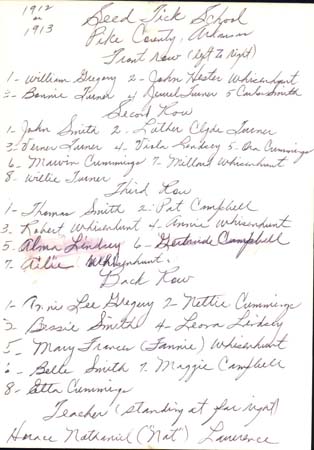 1912
or
1913
Seed Tick School
Pike County, Arkansas
Front Row (left to right)
1- William Gregory 2- John Hester Whisenhunt
3- Bonnie Turner 4 Jewel Turner 5 Carlos Smith
Second Row
1- John Smith 2- Luther Clyde Turner
3- Verner Turner 4 Viola Lindsey 5- Ora Cummings
6- Marvin Cummings 7- Millard Whisenhunt
8- Willie Turner
Third Row
1- Thomas Smith 2- Pat Campbell
3- Robert Whisenhunt 4- Annie Whisenhunt
5 Alma Lindsey 6- Gertrude Campbell
7- Ailie Whisenhunt
Back Row
1- Annie Lee Gregory 2- Nettie Cummings
3 Bessie Smith 4- Leora Lindsey
5- Mary Frances (Fannie) Whisenhunt
6- Belle Smith 7. Maggie Campbell
8- Etta Cummings
Teacher (standing at far right)
Horace Nathaniel ("Nat") Lawrence